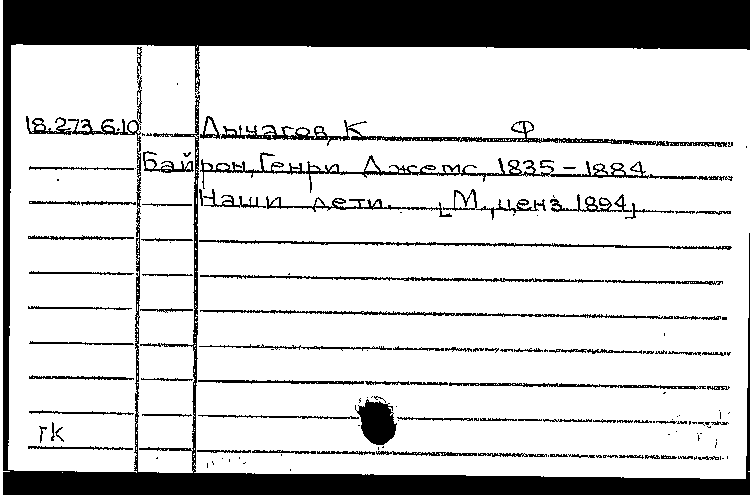 18.273.6.10 Лычагов, К Ф
Байрон, Генри Джемс, 1835-1884.
Наши дети. [М., ценз. 1894]
гк